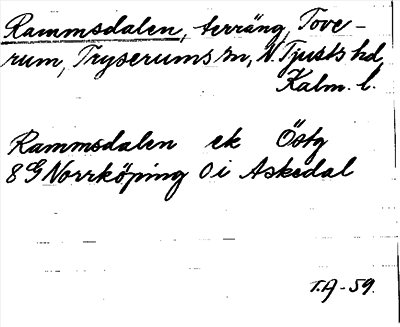 Rammsdalen, terräng, Tove-
rum, Tryserums sn, N. Tjusts hd,
Kalm. l.
Rammsdalen ek Östg
8G Norrköping 0i Askedal
T.A-59.